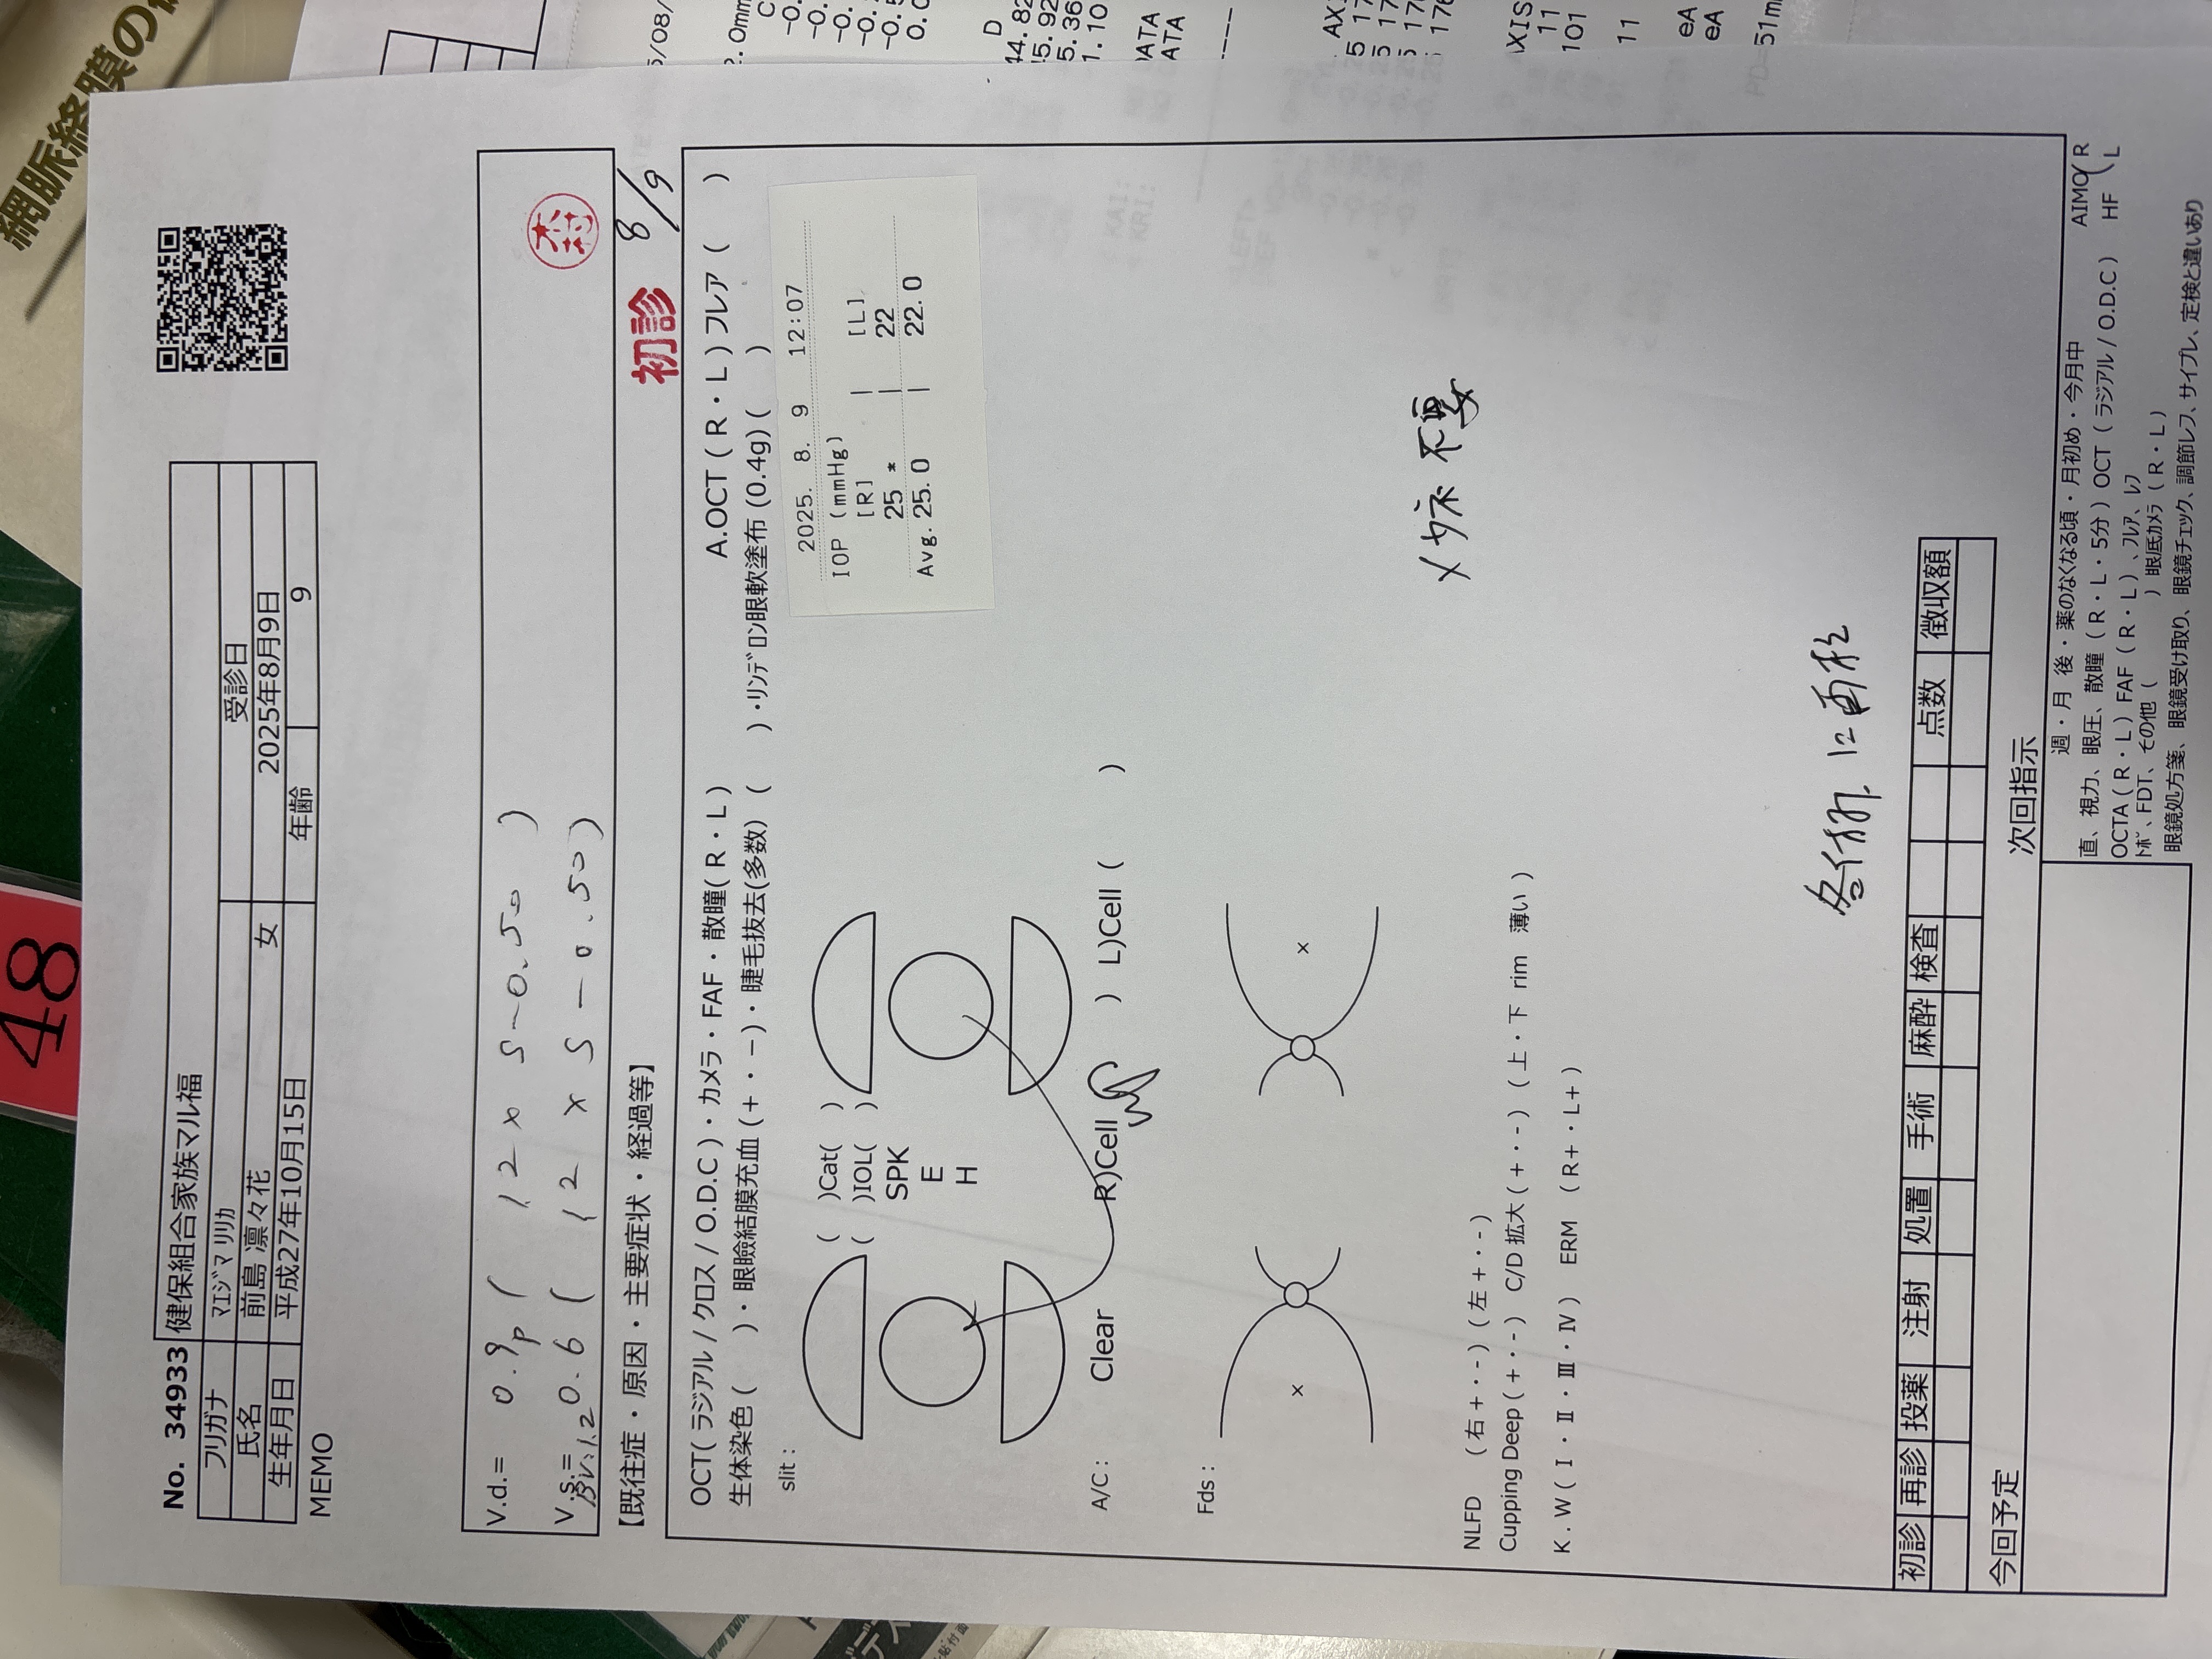 48
網脈絡膜の
No. 34933 健保組合家族マル福
フリガナ ﾏｴｼﾞﾏ ﾘﾘｶ 受診日
氏名 前島 凛々花 女 2025年8月9日
生年月日 平成27年10月15日 年齢 9
MEMO
V.d.= 0.9p ( 1.2 x S-0.50 )
V.s.= 0.6 ( 1.2 x S-0.50)
BV:1.2
木村
【既往症・原因・主要症状・経過等】 初診 8/9
OCT( ラジアル / クロス / O.D.C )・カメラ・FAF・散瞳( R・L ) A.OCT ( R・L ) フレア ( )
生体染色 ( )・眼瞼結膜充血 (+・−)・睫毛抜去(多数) ( )・ﾘﾝﾃﾞﾛﾝ眼軟塗布 (0.4g) ( )
slit :
( )Cat( )
( )IOL( )
SPK
E
H
2025. 8. 9 12:07
IOP (mmHg)
[R] | [L]
25 * | 22
Avg. 25.0 | 22.0
A/C : Clear R)Cell ) L)Cell ( )
Fds :
× ×
不要
NLFD (右 +・-) (左 +・-)
Cupping Deep ( +・- ) C/D 拡大 ( +・- ) ( 上・下 rim 薄い )
K . W ( Ⅰ・Ⅱ・Ⅲ・Ⅳ ) ERM ( R+・L+ )
に再検
初診 再診 投薬 注射 処置 手術 麻酔 検査 点数 徴収額
今回予定
次回指示
週・月 後・薬のなくなる頃・月初め・今月中
直、視力、眼圧、散瞳 ( R・L・5分 ) OCT ( ラジアル / O.D.C )
OCTA ( R・L ) FAF ( R・L ) 、ﾌﾚｱ、ﾚﾌ
ﾄﾎﾟ、FDT、その他 ( ) 眼底ｶﾒﾗ ( R・L )
眼鏡処方箋、眼鏡受け取り、眼鏡チェック、調節レフ、サイプレ、定検と違いあり
AIMO ( R
HF L
5/08/
-0.
-0.
-0.
-0.
-0.5
0.0
D
44.82
45.92
5.36
1.10
DATA
ATA
AXI
5 17
5 17
5 17
176
AXIS
11
101
11
eA
eA
PD=51m